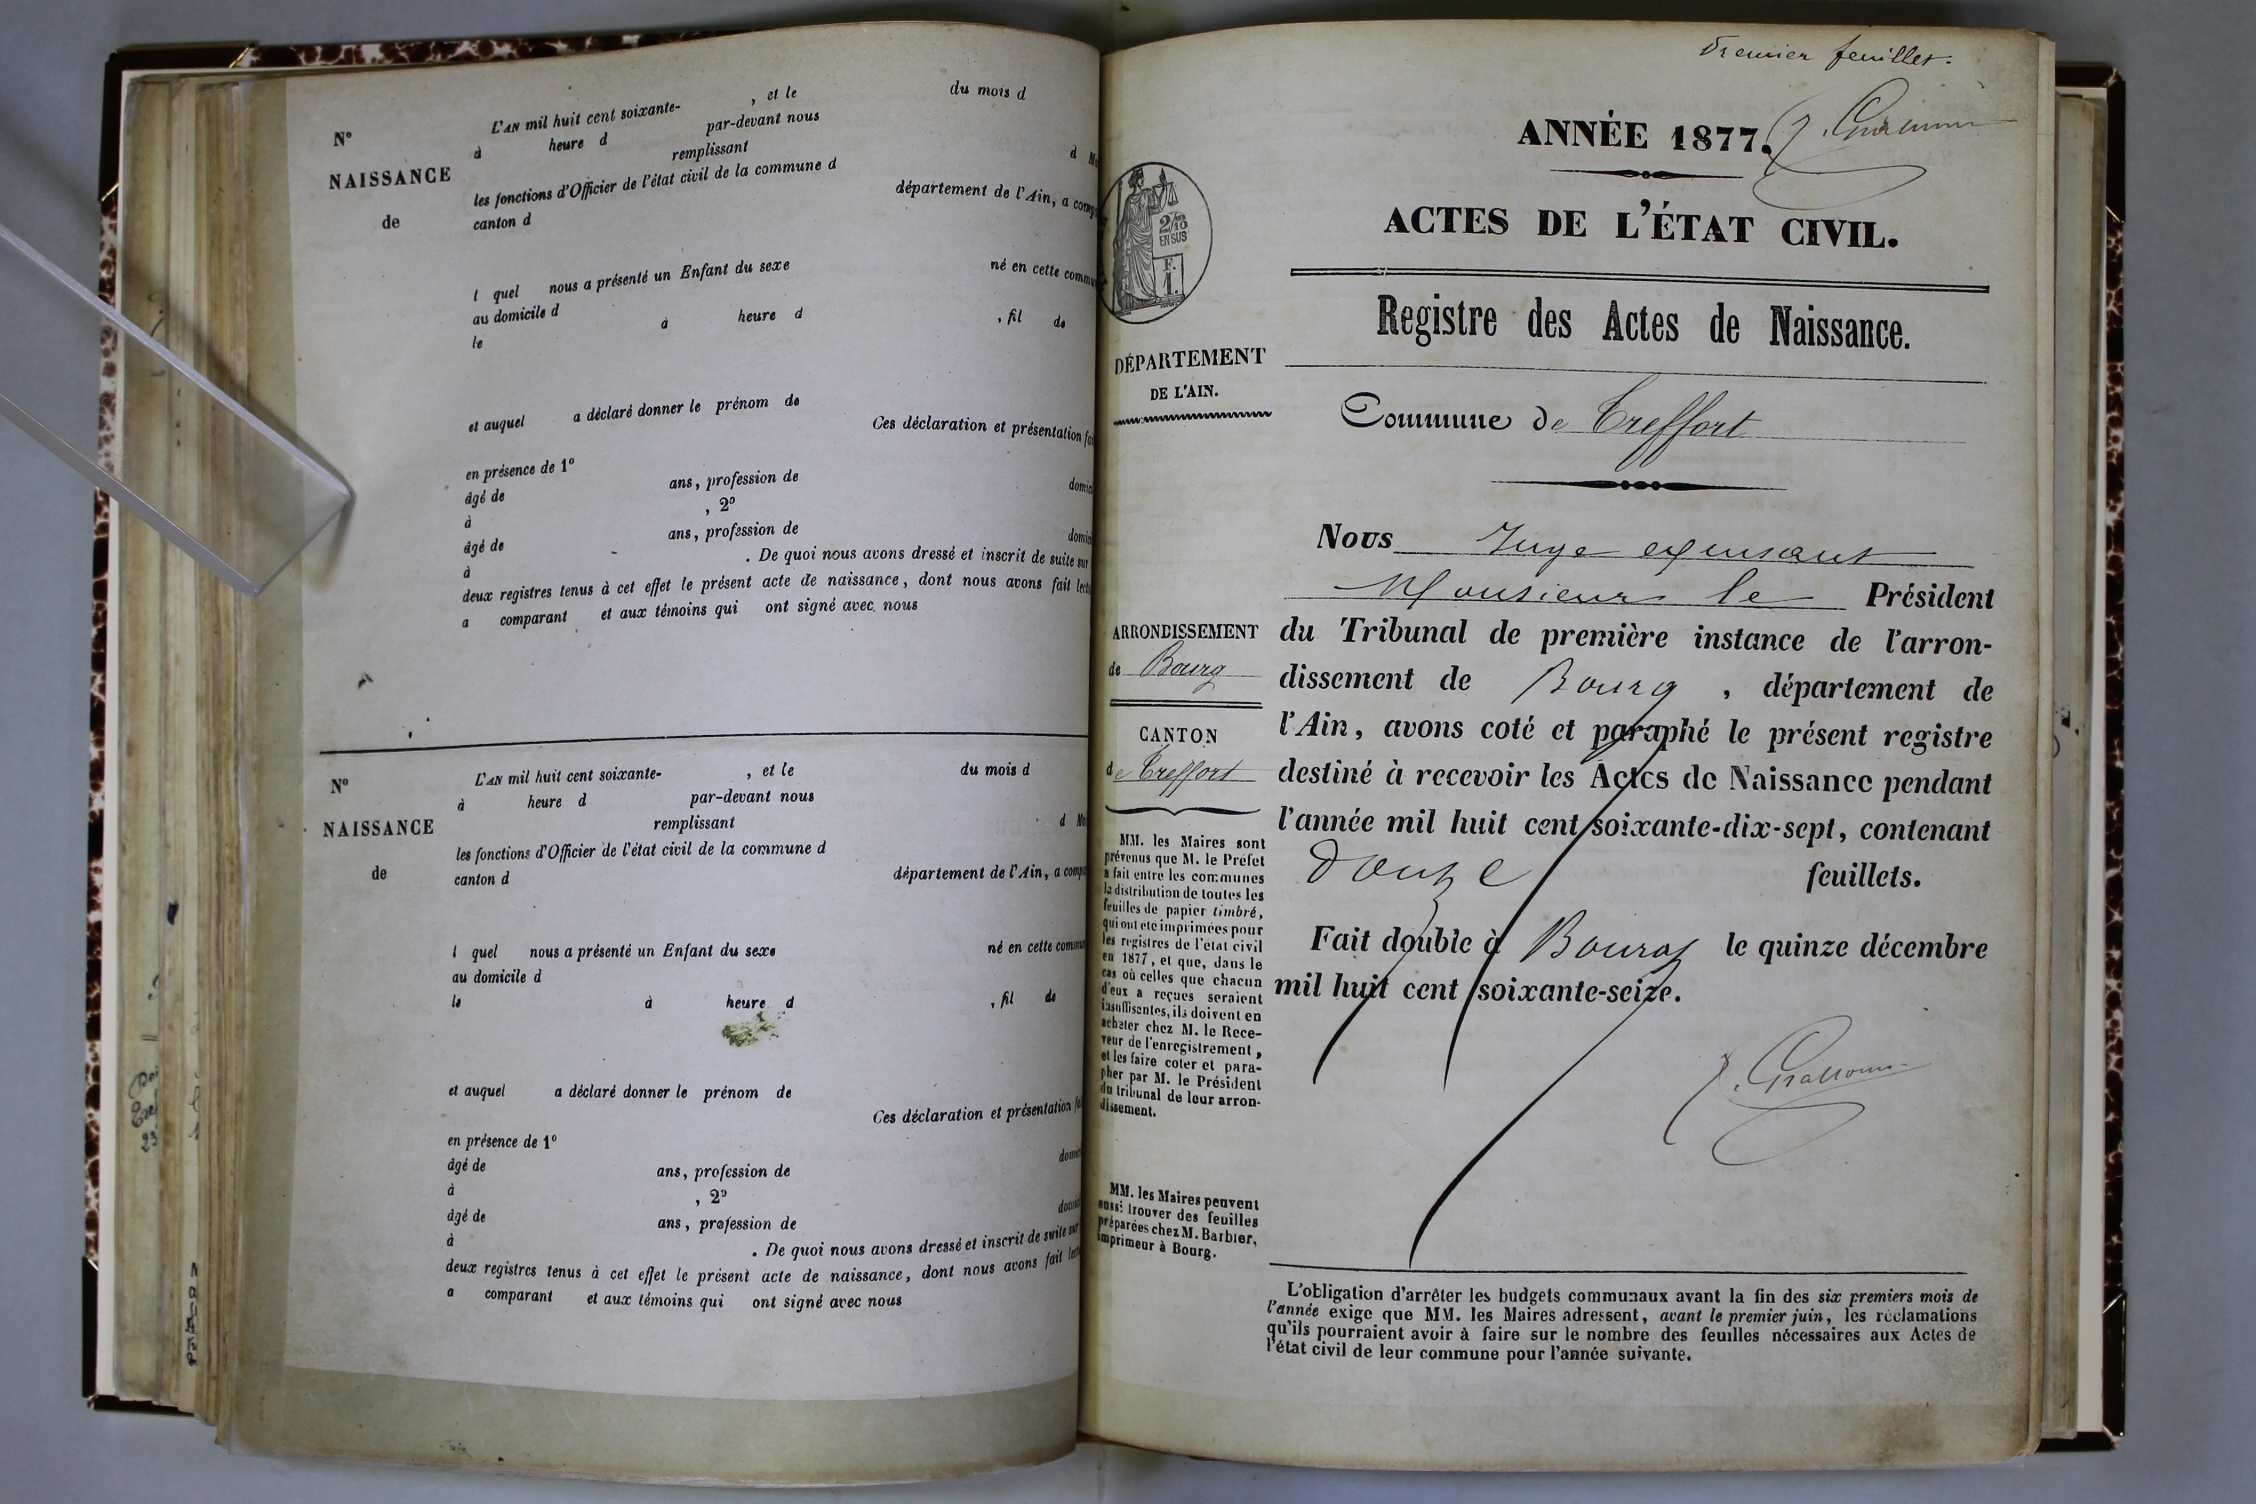 N°
NAISSANCE
de
L'AN mil huit cent soixante- , et le du mois d
à heure d par-devant nous
remplissant d
les fonctions d'Officier de l'état civil de la commune d
canton d département de l'Ain, a
l quel nous a présenté un Enfant du sexe né en cette
au domicile d
le à heure d , fil de
et auquel a déclaré donner le prénom de
Ces déclaration et présentation
en présence de 1°
âgé de ans, profession de
à , 2°
âgé de ans, profession de
à . De quoi nous avons dressé et inscrit de suite sur
deux registres tenus à cet effet le présent acte de naissance, dont nous avons fait
a comparant et aux témoins qui ont signé avec nous
N°
NAISSANCE
de
L'AN mil huit cent soixante- , et le du mois d
à heure d par-devant nous
remplissant d
les fonctions d'Officier de l'état civil de la commune d
canton d département de l'Ain, a
l quel nous a présenté un Enfant du sexe né en cette
au domicile d
le à heure d , fil de
et auquel a déclaré donner le prénom de
Ces déclaration et présentation
en présence de 1°
âgé de ans, profession de
à , 2°
âgé de ans, profession de
à . De quoi nous avons dressé et inscrit de suite sur
deux registres tenus à cet effet le présent acte de naissance, dont nous avons fait
a comparant et aux témoins qui ont signé avec nous
Premier feuillet.
ANNÉE 1877.
ACTES DE L'ÉTAT CIVIL.
Registre des Actes de Naissance.
2/10
EN SUS
F.
1.
DÉPARTEMENT
DE L'AIN.
Commune de Treffort
ARRONDISSEMENT
de Bourg
CANTON
de Treffort
MM. les Maires sont
prévenus que M. le Préfet
a fait entre les communes
la distribution de toutes les
feuilles de papier timbré,
qui ont été imprimées pour
les registres de l'état civil
en 1877, et que, dans le
cas où celles que chacun
d'eux a reçues seraient
insuffisantes, ils doivent en
acheter chez M. le Rece-
veur de l'enregistrement,
et les faire coter et para-
pher par M. le Président
du tribunal de leur arron-
dissement.
MM. les Maires peuvent
aussi trouver des feuilles
préparées chez M. Barbier,
imprimeur à Bourg.
Nous Juge
Monsieur le Président
du Tribunal de première instance de l'arron-
dissement de Bourg , département de
l'Ain, avons coté et paraphé le présent registre
destiné à recevoir les Actes de Naissance pendant
l'année mil huit cent soixante-dix-sept, contenant
douze feuillets.
Fait double à Bourg le quinze décembre
mil huit cent soixante-seize.
L'obligation d'arrêter les budgets communaux avant la fin des six premiers mois de
l'année exige que MM. les Maires adressent, avant le premier juin, les réclamations
qu'ils pourraient avoir à faire sur le nombre des feuilles nécessaires aux Actes de
l'état civil de leur commune pour l'année suivante.